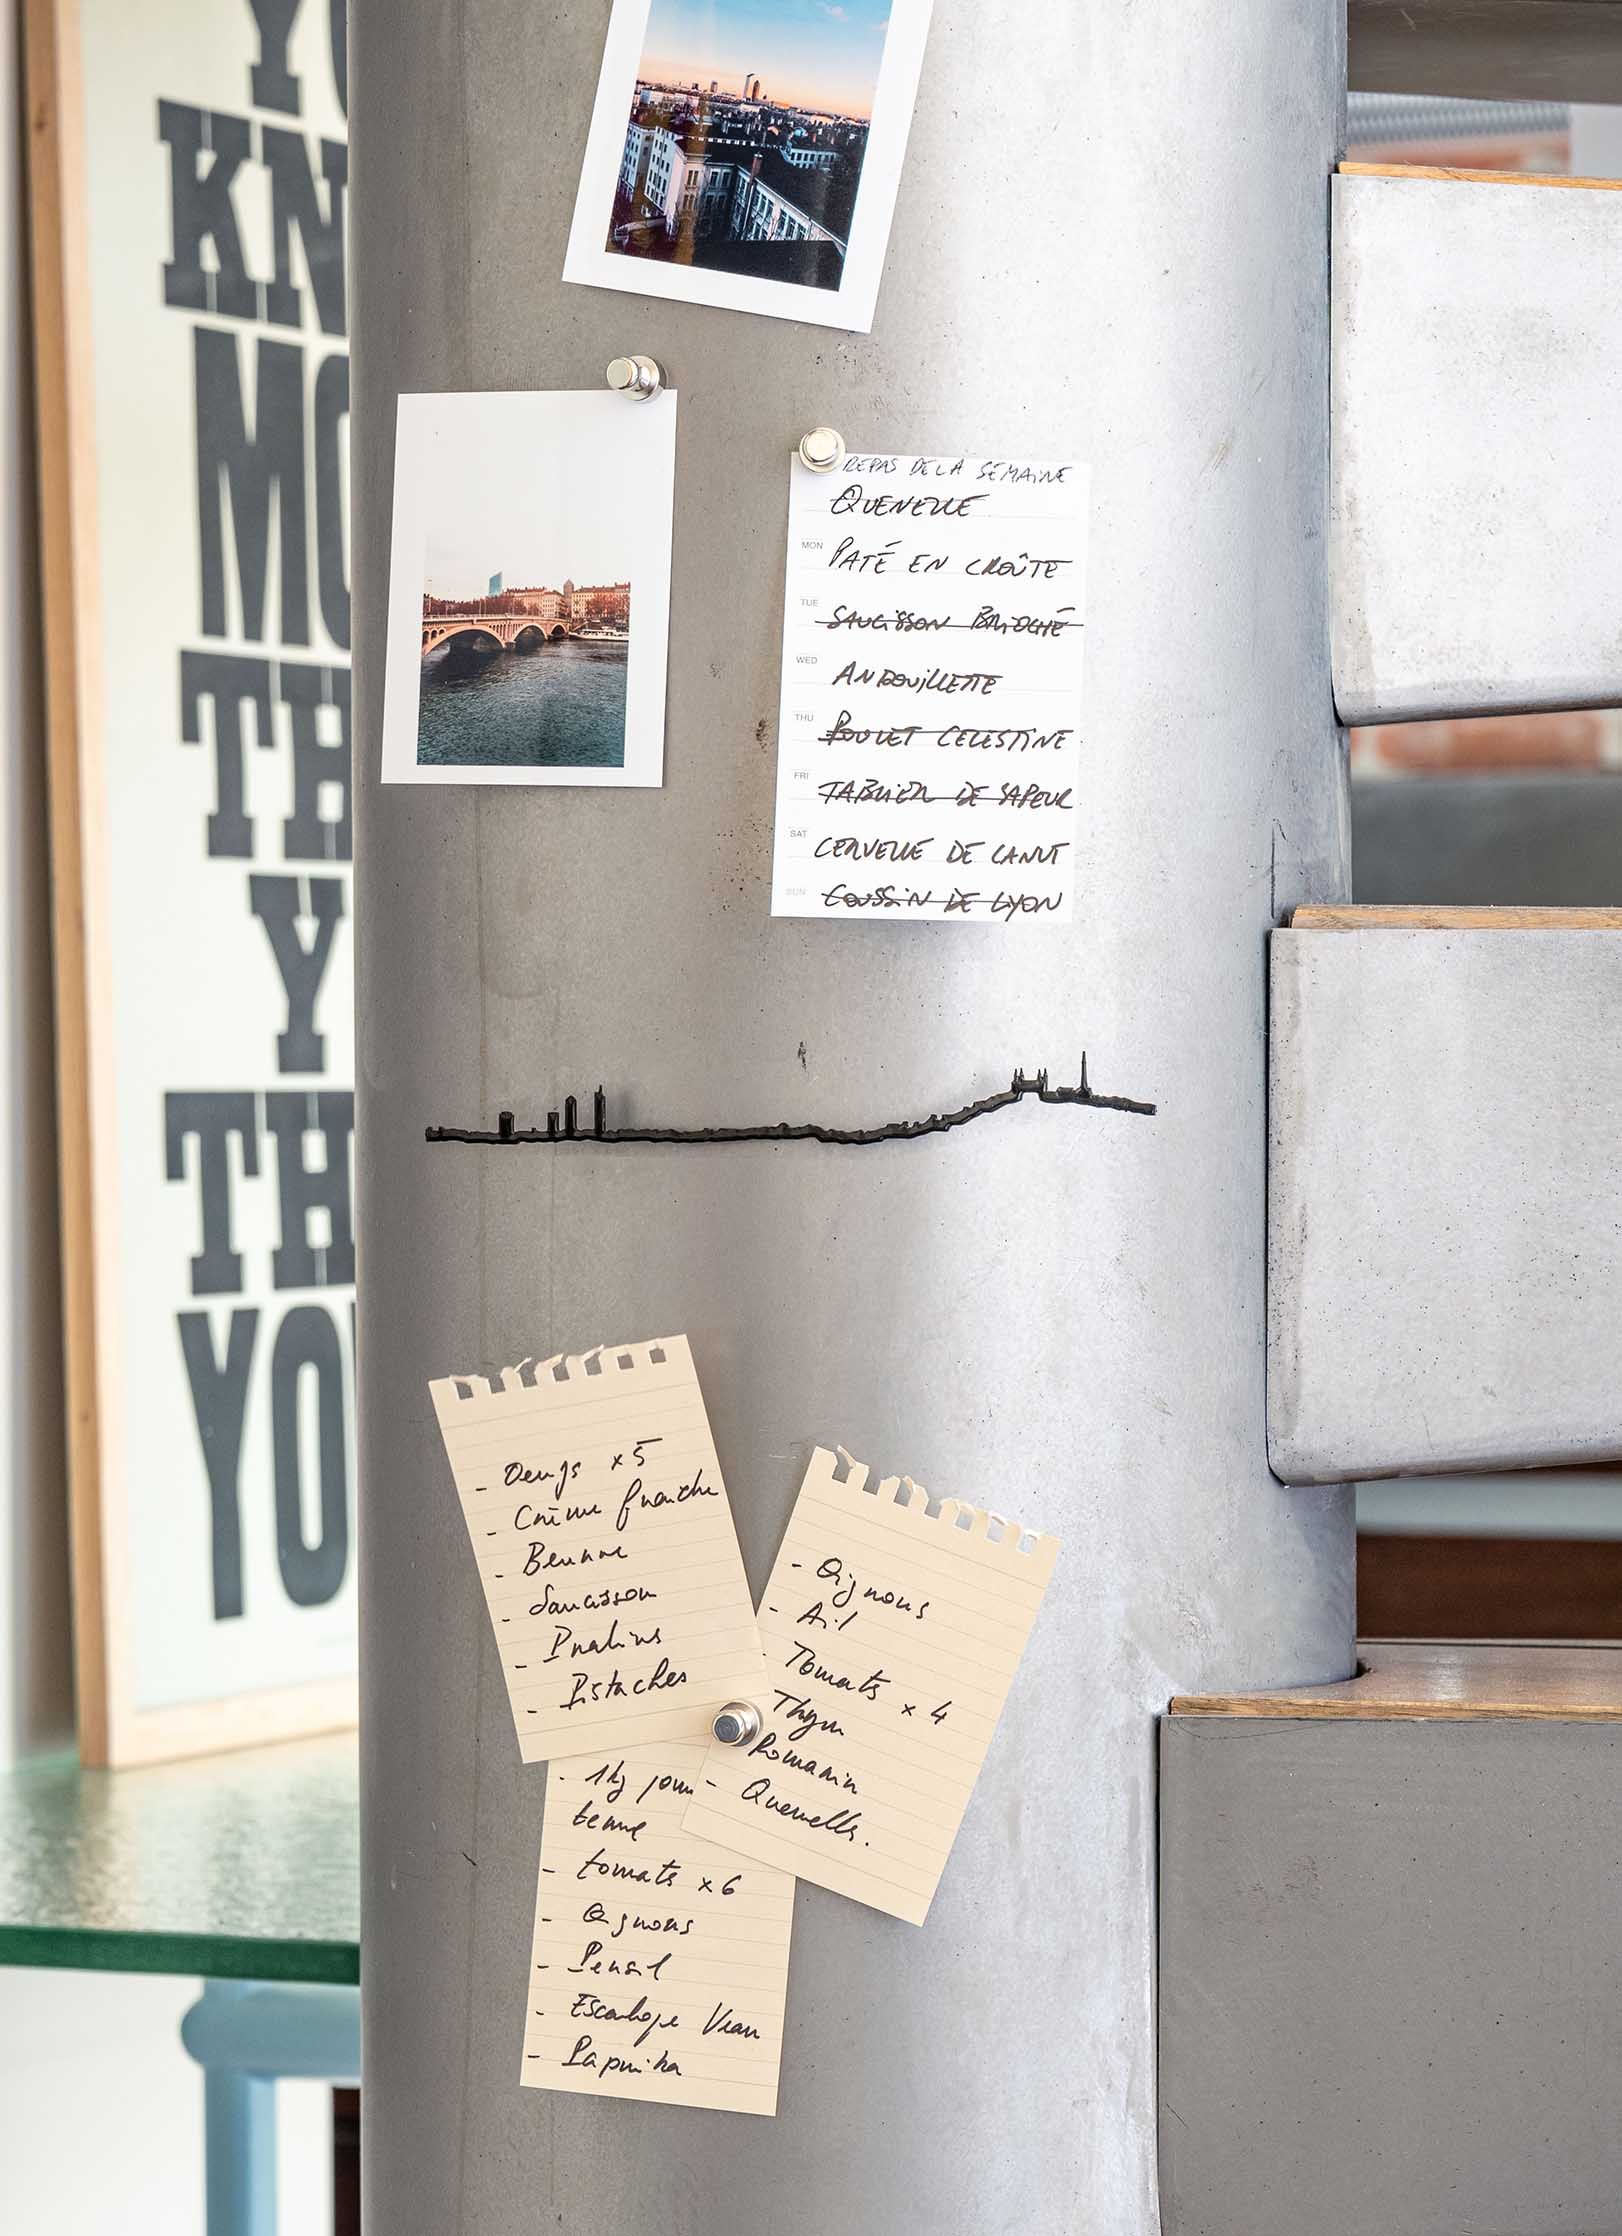 YO
KN
MO
TH
Y
TH
YO
REPAS DE LA SEMAINE
QUENELLE
MON PATÉ EN CROÛTE
TUE SAUCISSON BRIOCHÉ
WED ANDOUILLETTE
THU POULET CELESTINE
FRI TABLIER DE SAPEUR
SAT CERVELLE DE CANUT
SUN COUSSIN DE LYON
- Oeufs x5
- Crème fraiche
- Beurre
- Saucisson
- Pralins
- Pistaches
- Oignons
- Ail
Tomats x 4
Thym
Romarin
- Quenelles.
- 1kg pom
terre
- tomats x6
- Oignons
- Persil
- Escalope Veau
- Paprika